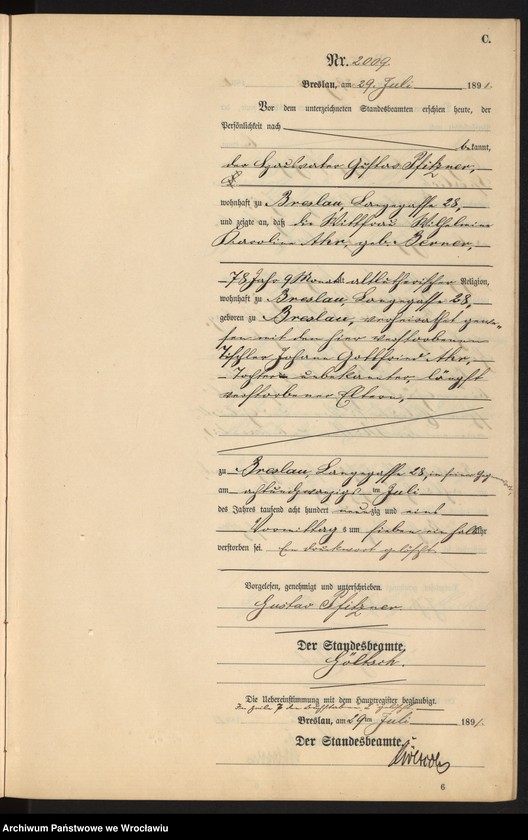 C.
Nr. 2009
Breslau, am 29. Juli 1891.
Vor dem unterzeichneten Standesbeamten erschien heute, der
Persönlichkeit nach
bekannt,
der Hausvater Gustav Pfitzner,
wohnhaft zu Breslau, Langegasse 28,
und zeigte an, daß die Wittfrau Wilhelmine
Karoline Ahr, geb. Berner,
78 Jahr 9 Monate altlutherischer Religion,
wohnhaft zu Breslau, Langegasse 28,
geboren zu Breslau, verheirathet gewe-
sen mit dem hier verstorbenen
Tischler Johann Gottfried Ahr,
Tochter unbekannter, längst
verstorbener Eltern,
zu Breslau, Langegasse 28, in seiner Gegenwart,
am achtundzwanzigsten Juli
des Jahres tausend acht hundert neunzig und eins
Vormittags um sieben ein halb Uhr
verstorben sei. Ein Druckwort gelöscht.
Vorgelesen, genehmigt und unterschrieben.
Gustav Pfitzner.
Der Standesbeamte.
Göltsch.
Die Uebereinstimmung mit dem Hauptregister beglaubigt.
Breslau, am 29ten Juli 1891.
Der Standesbeamte.
6
Archiwum Państwowe we Wrocławiu